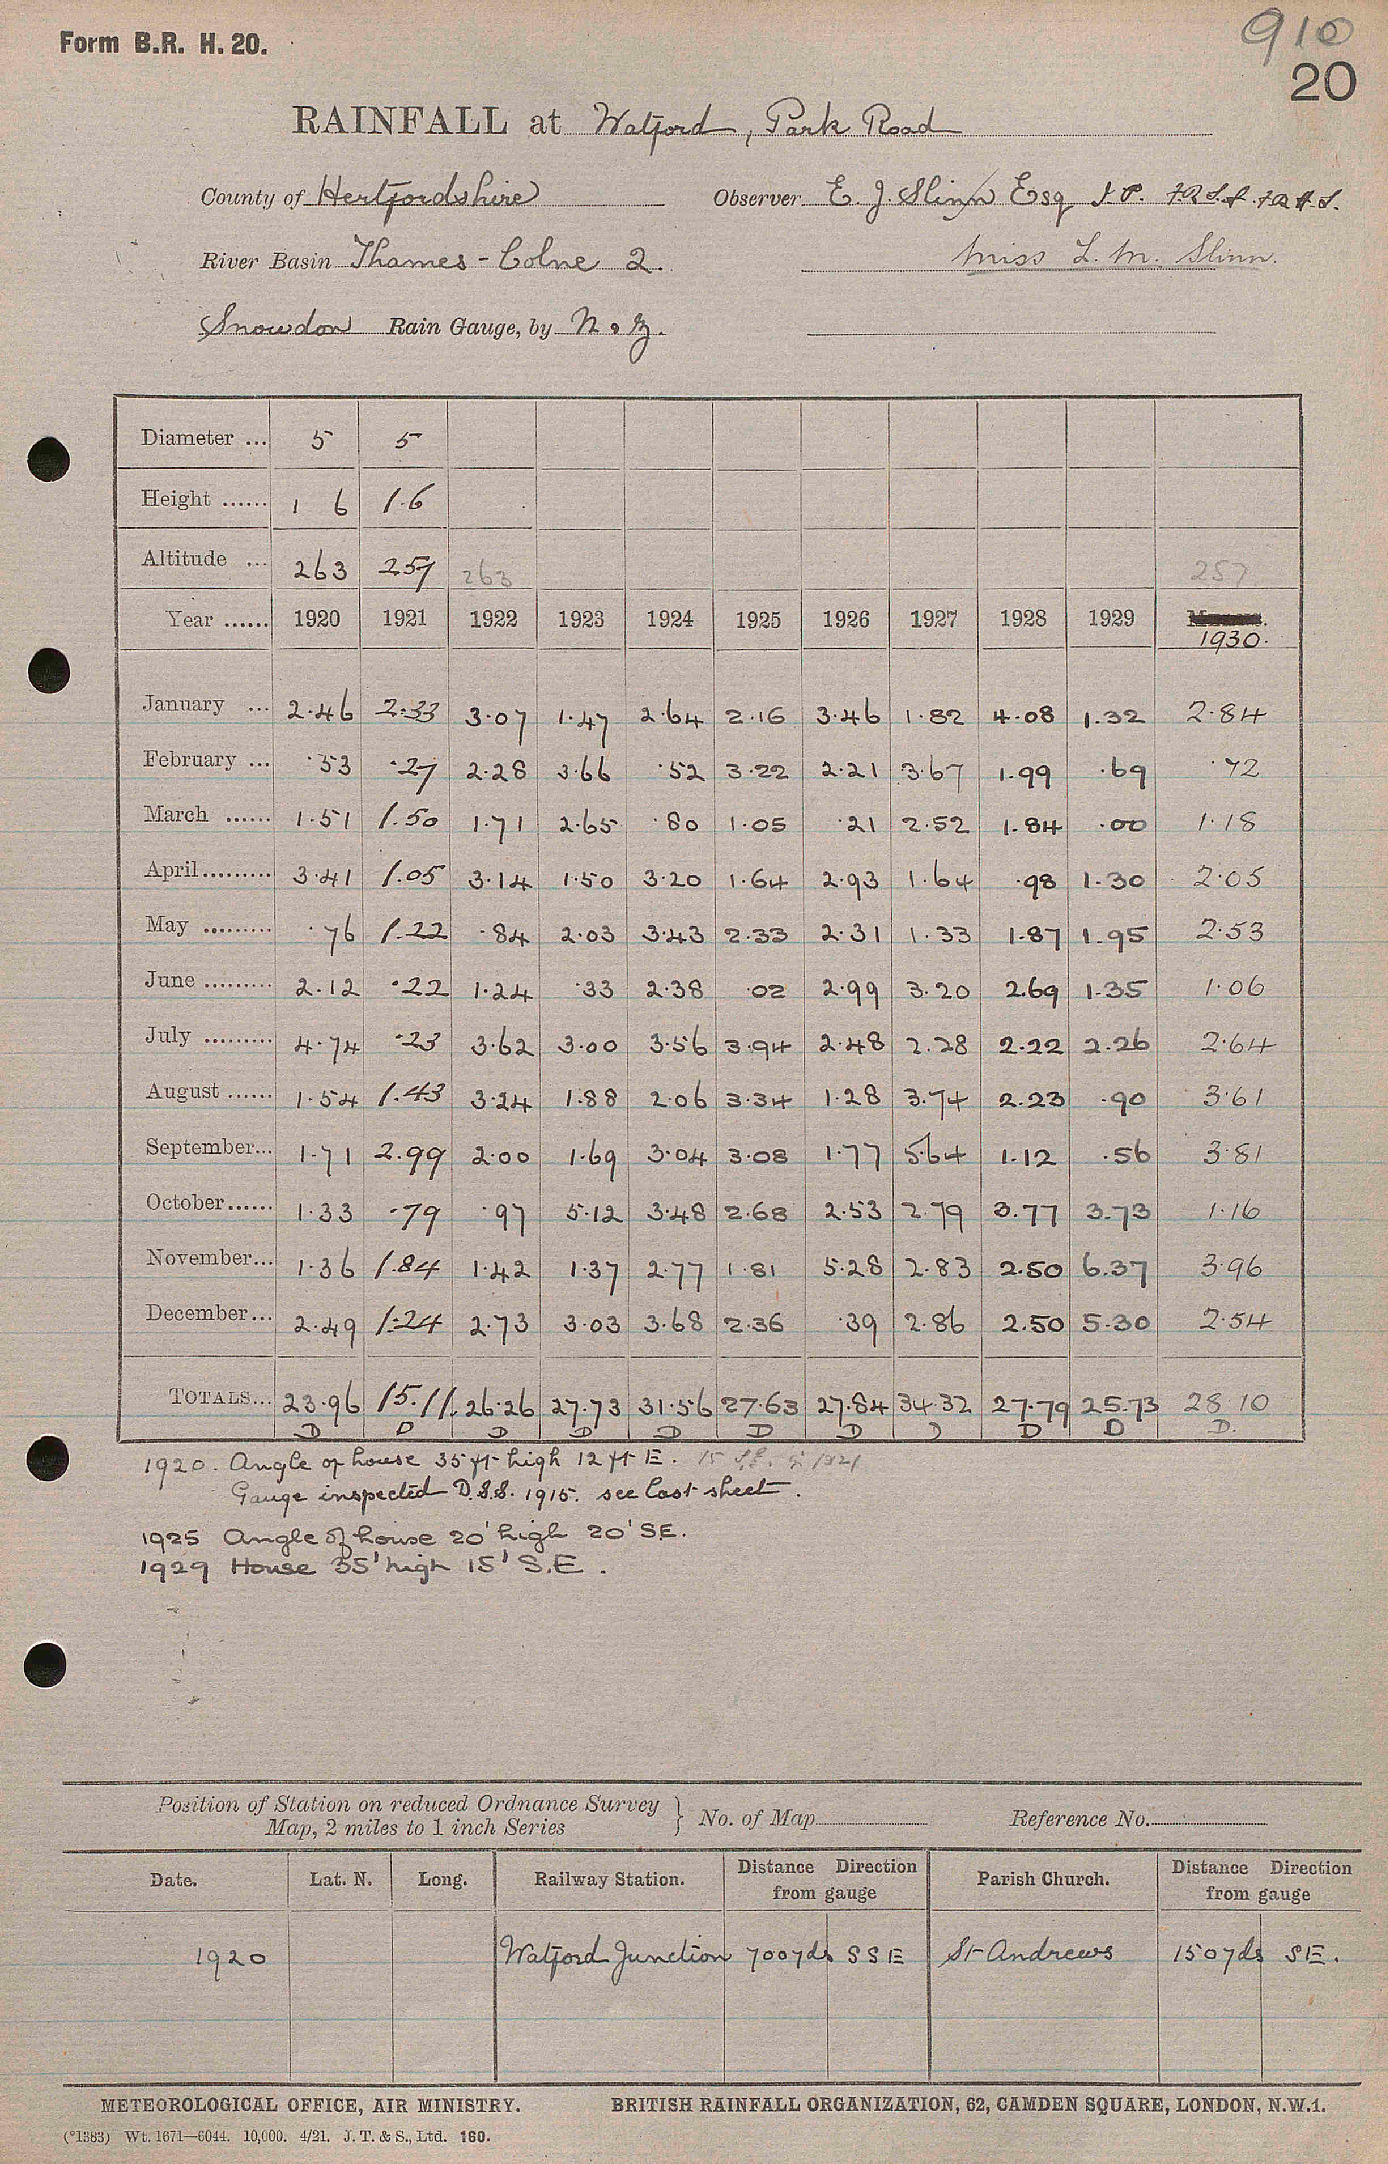 Form B.R. H. 20.
910
20
RAINFALL at Watford, Park Road
County of Hertfordshire Observer E. J. Slinn Esq J.P. F.R.S.A. F.R.H.S.
River Basin Thames - Colne 2. Miss L. M. Slinn.
Snowdon Rain Gauge, by N & Z.
Diameter ... 5 5
Height ...... 1 6 1.6
Altitude ... 263 257 263 257
Year ...... 1920 1921 1922 1923 1924 1925 1926 1927 1928 1929 1930.
January ... 2.46 2.33 3.07 1.47 2.64 2.16 3.46 1.82 4.08 1.32 2.84
February ... .53 .27 2.28 3.66 .52 3.22 2.21 3.67 1.99 .69 .72
March ...... 1.51 1.50 1.71 2.65 .80 1.05 .21 2.52 1.84 .00 1.18
April......... 3.41 1.05 3.14 1.50 3.20 1.64 2.93 1.64 .98 1.30 2.05
May ......... .76 1.22 .84 2.03 3.43 2.33 2.31 1.33 1.87 1.95 2.53
June ......... 2.12 .22 1.24 .33 2.38 .02 2.99 3.20 2.69 1.35 1.06
July ......... 4.74 .23 3.62 3.00 3.56 3.94 2.48 2.28 2.22 2.26 2.64
August ...... 1.54 1.43 3.24 1.88 2.06 3.34 1.28 3.74 2.23 .90 3.61
September... 1.71 2.99 2.00 1.69 3.04 3.08 1.77 5.64 1.12 .56 3.81
October...... 1.33 .79 .97 5.12 3.48 2.68 2.53 2.79 3.77 3.73 1.16
November... 1.36 1.84 1.42 1.37 2.77 1.81 5.28 2.83 2.50 6.37 3.96
December... 2.49 1.24 2.73 3.03 3.68 2.36 .39 2.86 2.50 5.30 2.54
TOTALS... 23.96 15.11. 26.26 27.73 31.56 27.63 27.84 34.32 27.79 25.73 28.10
D D D D D D D D D D D.
1920. Angle of house 35 ft high 12 ft E. 15 ft. in 1921
Gauge inspected D.S.S. 1915. see last sheet.
1925 Angle of house 20' high 20' S.E.
1929 House 35' high 15' S.E.
Position of Station on reduced Ordnance Survey
Map, 2 miles to 1 inch Series } No. of Map Reference No.
Date. Lat. N. Long. Railway Station. Distance Direction from gauge Parish Church. Distance Direction from gauge
1920 Watford Junction 700yds SSE St Andrews 150yds SE.
METEOROLOGICAL OFFICE, AIR MINISTRY. BRITISH RAINFALL ORGANIZATION, 62, CAMDEN SQUARE, LONDON, N.W.1.
(*1383) Wt. 1671—6044. 10,000. 4/21. J. T. & S., Ltd. 160.